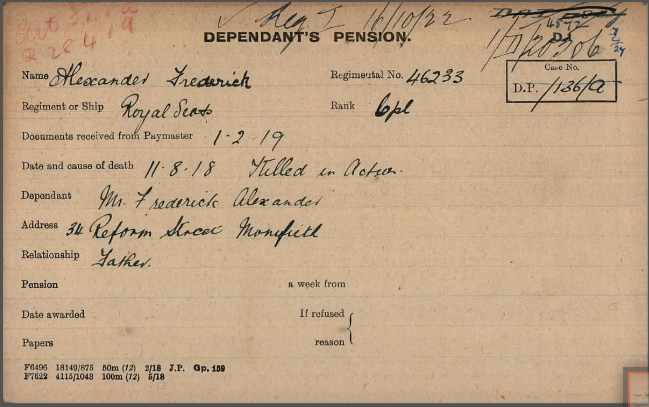 Reg I 16/10/22
DEPENDANT'S PENSION.
1/D/20306
Name Alexander Frederick Regimental No. 46233
Case No.
D.P. /136/A
Regiment or Ship Royal Scots Rank Cpl
Documents received from Paymaster 1-2-19
Date and cause of death 11-8-18 Killed in Action.
Dependant Mr. Frederick Alexander
Address 34 Reform Street Monifieth
Relationship Father.
Pension a week from
Date awarded If refused
Papers reason
F6496 18149/875 50m (12) 2/18 J.P. Gp. 159
F7622 4115/1043 100m (12) 5/18